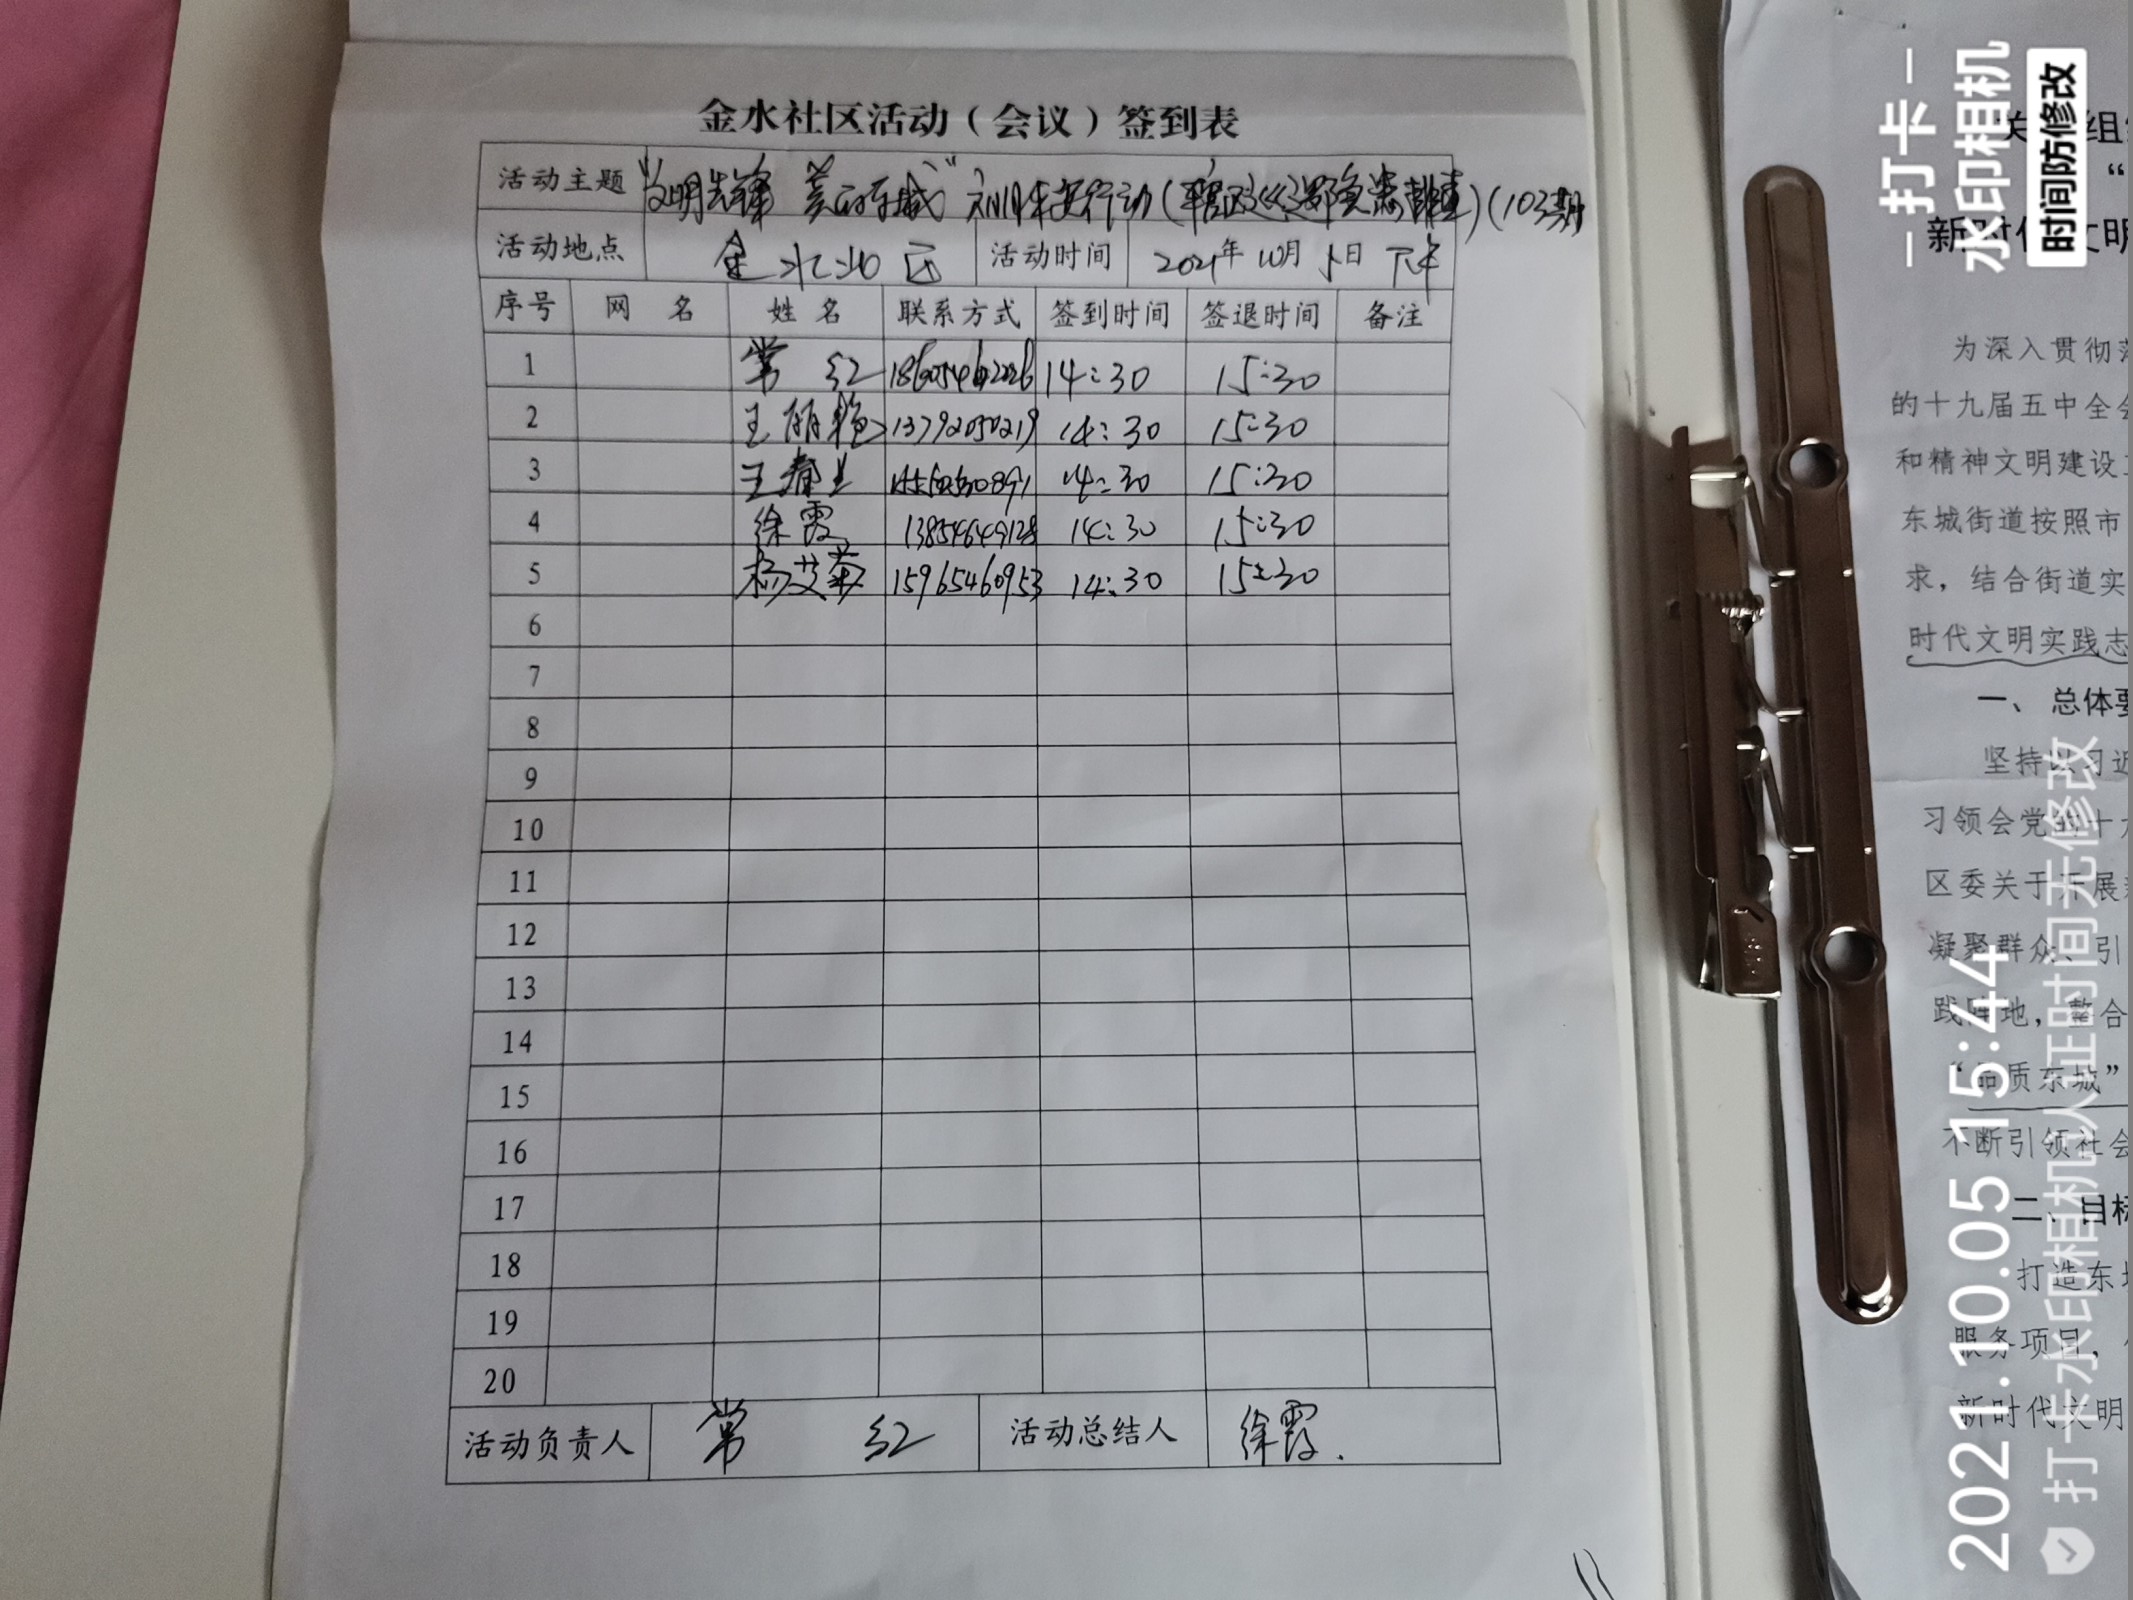 金水社区活动（会议）签到表
活动主题 “文明先锋 美丽东城” 行动（ ）（103期
活动地点 金水北区 活动时间 2021年10月5日 下午
序号 网 名 姓 名 联系方式 签到时间 签退时间 备注
1 常 红 14:30 15:30
2 王丽艳 13792050219 14:30 15:30
3 王春兰 14:30 15:30
4 徐霞 13854649128 14:30 15:30
5 杨艾菊 15965460953 14:30 15:30
6
7
8
9
10
11
12
13
14
15
16
17
18
19
20
活动负责人 常 红 活动总结人 徐霞.
组
“
新时代文明
为深入贯彻
的十九届五中全
和精神文明建设
东城街道按照市
求，结合街道实
时代文明实践志
一、总体要
坚持以习近
习领会党的十
区委关于开展
凝聚群众、引
践阵地，整合
“品质东城”
不断引领社会
二、目标
打造东
服务项目，
新时代文明
打卡
水印相机
时间防修改
2021.10.05 15:44
打卡水印相机认证时间无修改